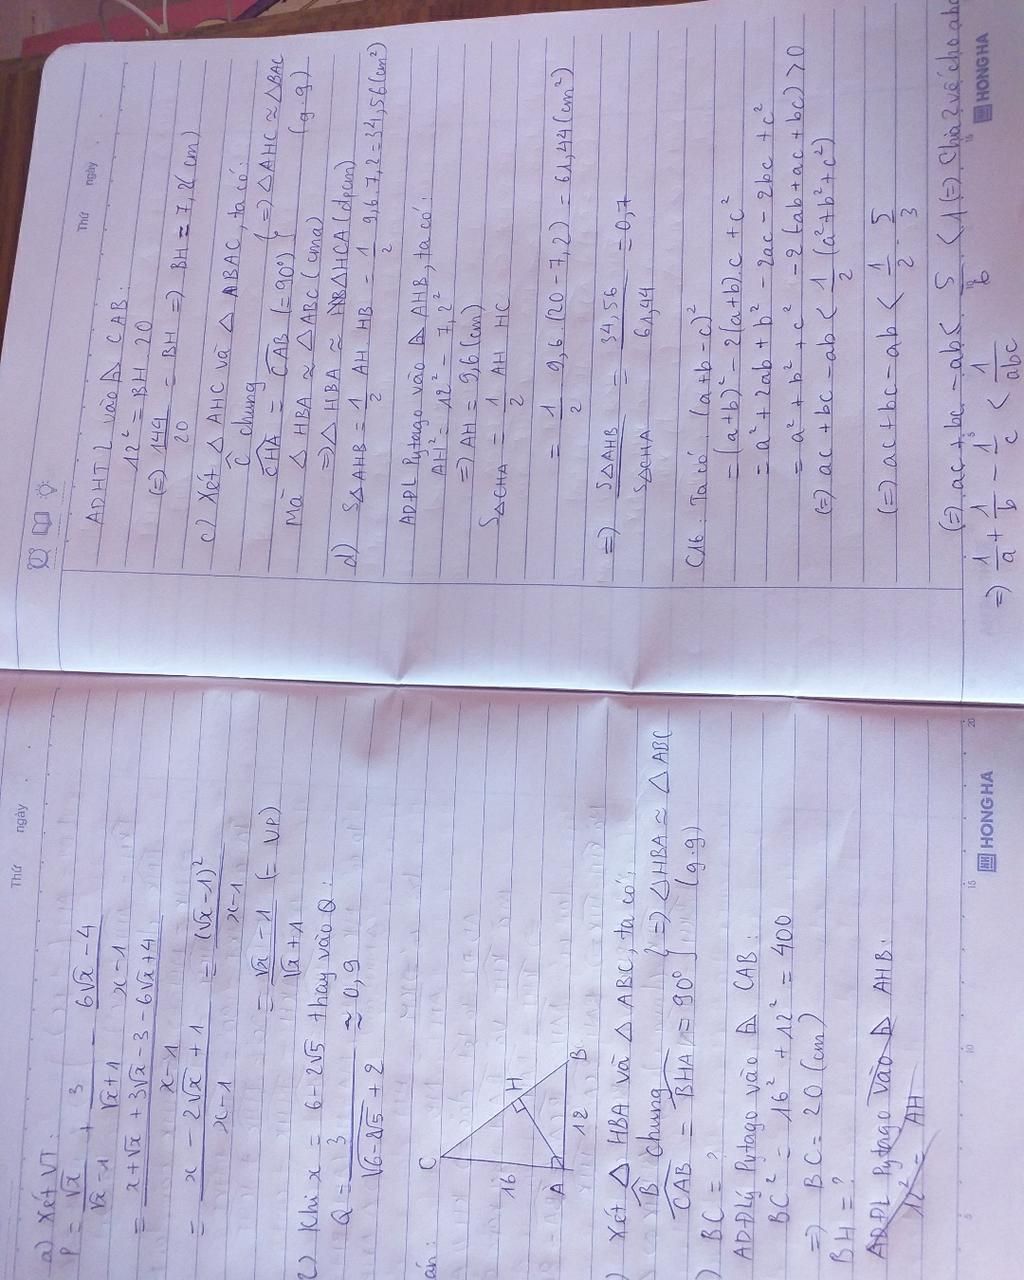 Thứ
ngày
a) Xét VT:
P = √x/(√x-1) + 3/(√x+1) - (6√x-4)/(x-1)
= (x+√x+3√x-3-6√x+4)/(x-1)
= (x-2√x+1)/(x-1) = (√x-1)²/(x-1)
= (√x-1)/(√x+1) (= VP)
2) Khi x = 6-2√5 thay vào Q:
Q = 3/(√(6-2√5)+2) ≈ 0,9
án:
C
16
H
A
12
B
) Xét △ HBA và △ ABC, ta có:
B̂ chung
CAB = BHA (= 90° } => △HBA ≈ △ABC
(g.g)
) BC = ?
ADĐLý Pytago vào △ CAB:
BC² = 16² + 12² = 400
=> BC = 20 (cm)
BH = ?
ADĐL Pytago vào △ AHB:
12² = AH
HONG HA
Thứ
ngày
ADHTL vào △ CAB:
12² = BH.20
(=) 144/20 = BH => BH = 7,2(cm)
c) Xét △ AHC và △ ABAC, ta có:
Ĉ chung
CHA = CAB (= 90°) } => △AHC ≈ △BAC
(g.g)
Mà △ HBA ≈ △ABC (cma)
=> △ HBA ≈ △HCA (đpcm)
d) S△AHB = 1/2 AH.HB = 1/2 9,6.7,2 = 34,56(cm²)
ADĐL Pytago vào △ AHB, ta có:
AH² = 12² - 7,2²
=> AH = 9,6(cm)
S△CHA = 1/2 AH HC
= 1/2 9,6.(20-7,2) = 61,44(cm²)
=> S△AHB/S△CHA = 34,56/61,44 = 0,7
C16: Ta có: (a+b-c)²
= (a+b)² - 2(a+b).c + c²
= a² + 2ab + b² - 2ac - 2bc + c²
= a² + b² + c² - 2(ab+ac+bc) > 0
(=) ac + bc - ab < 1/2 (a²+b²+c²)
(=) ac + bc - ab < 1/2 . 5/3
(=) ac + bc - ab < 5/6 < 1 (=) Chia 2 vế cho abc
=> 1/a + 1/b - 1/c < 1/abc
HONG HA